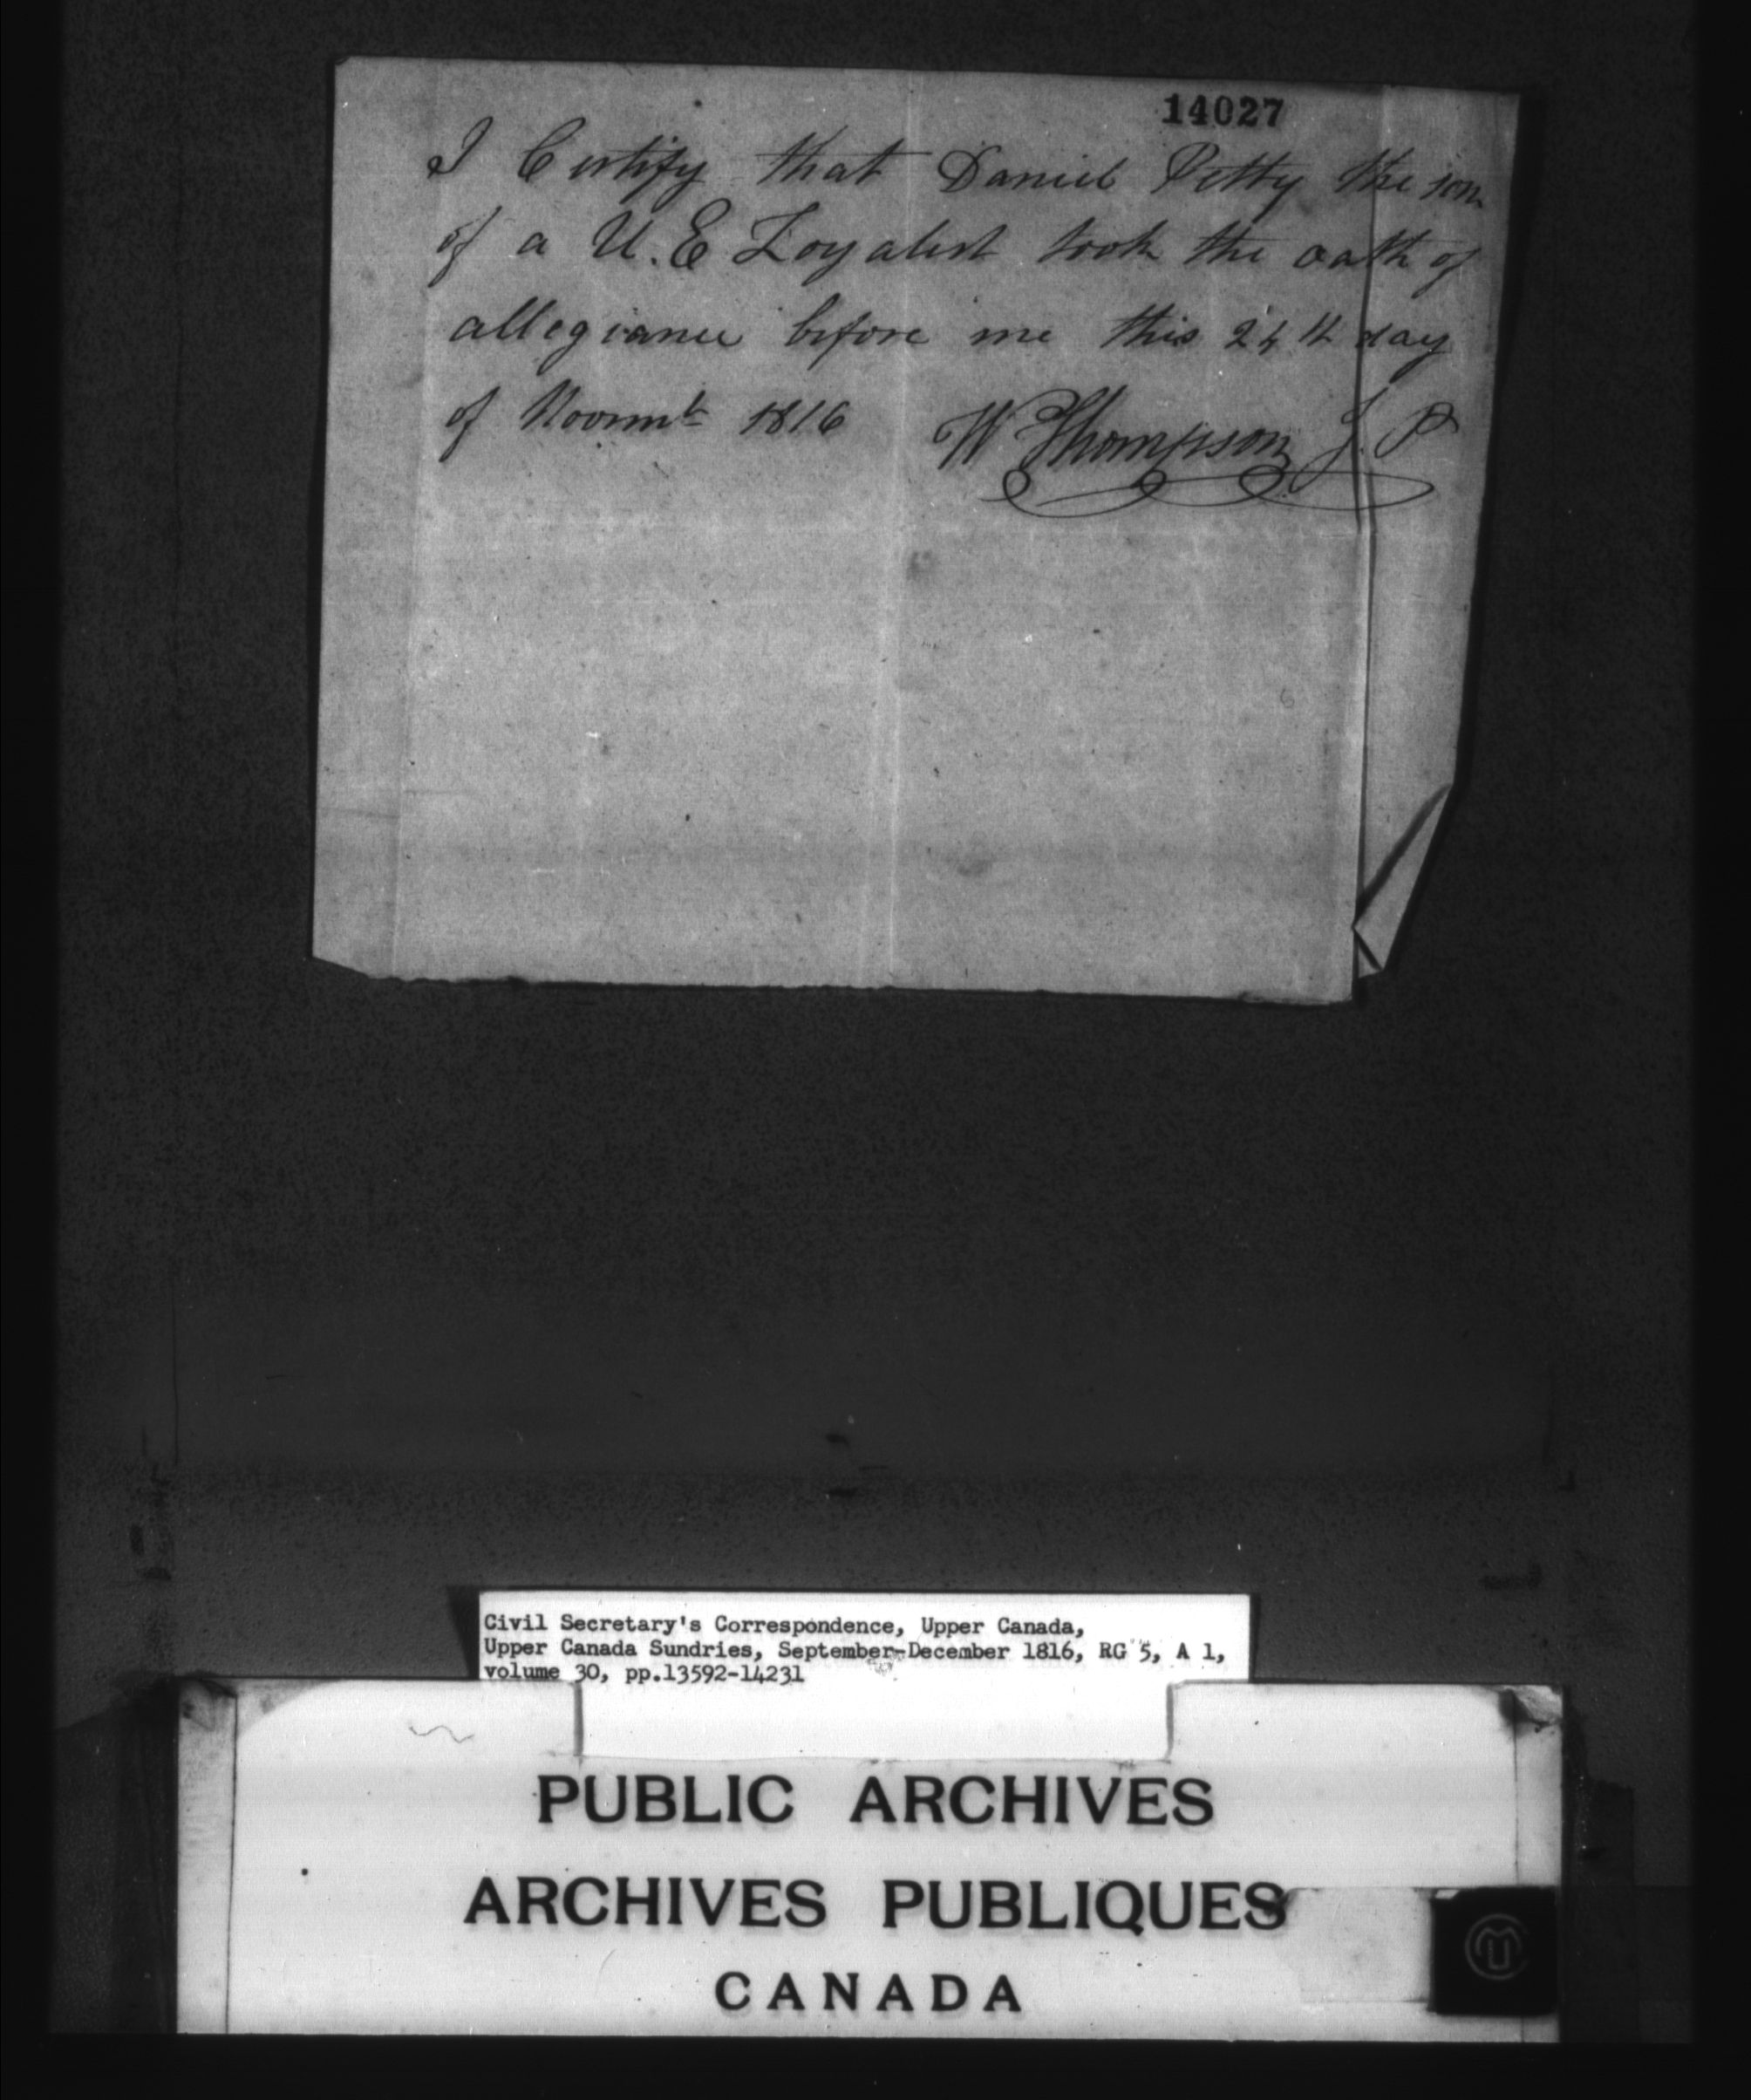 14027
I Certify that Daniel Petty the son
of a U.E Loyalist took the oath of
allegiance before me this 24th day
of Novemb 1816 W Thompson J.P
Civil Secretary's Correspondence, Upper Canada,
Upper Canada Sundries, September-December 1816, RG 5, A 1,
volume 30, pp.13592-14231
PUBLIC ARCHIVES
ARCHIVES PUBLIQUES
CANADA